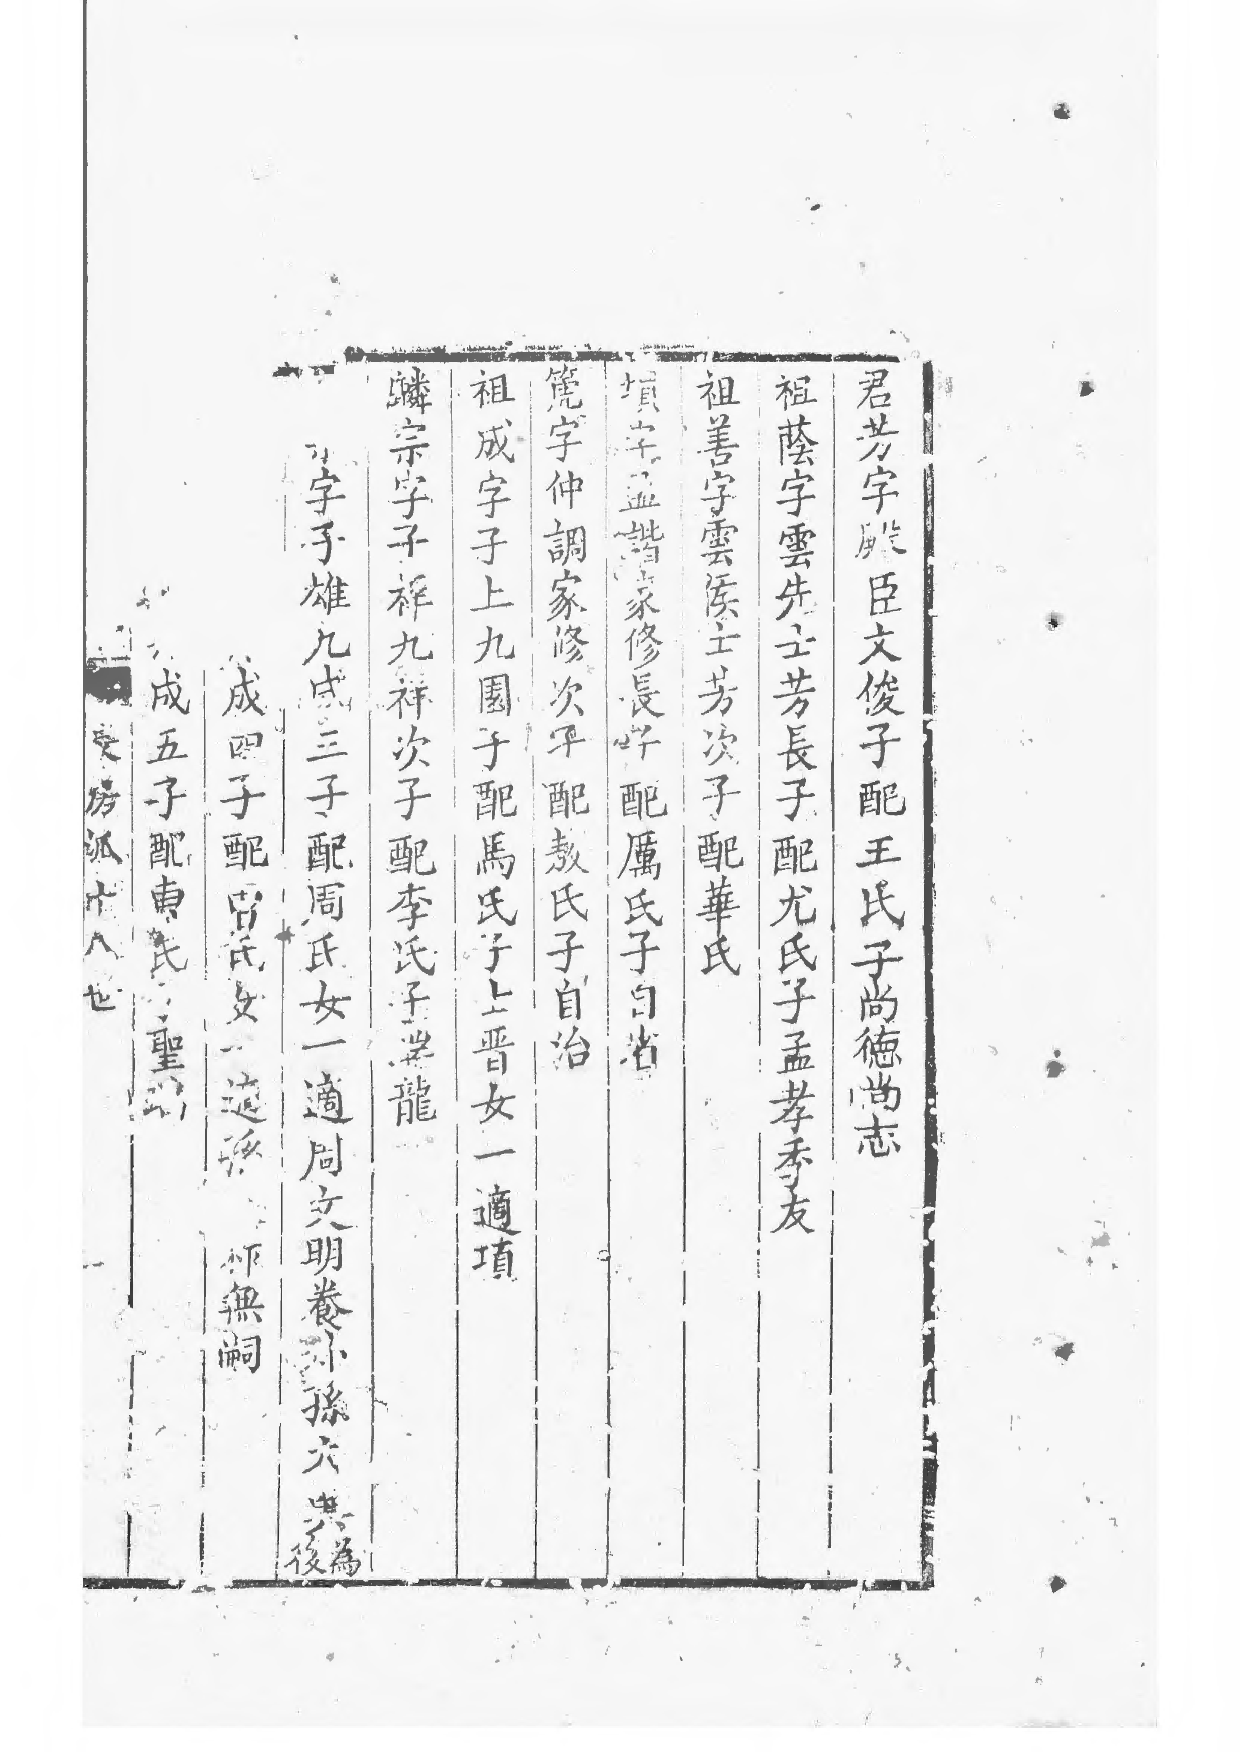 君芳字殿臣文俊子配王氏子尚德尚志
祖蔭字雲先士芳長子配尤氏子孟孝季友
祖善字雲侯士芳次子配華氏
塤字孟諧家修長子配厲氏子自省
篪字仲調家修次子配敖氏子自治
祖成字子上九圍子配馬氏子上晋女一適項
麟宗字子祥九祥次子配李氏子瑞龍
字子雄九成三子配周氏女一適周文明養孫六為後
成四子配氏女一適孫無嗣
成五子配氏聖
房派十八世